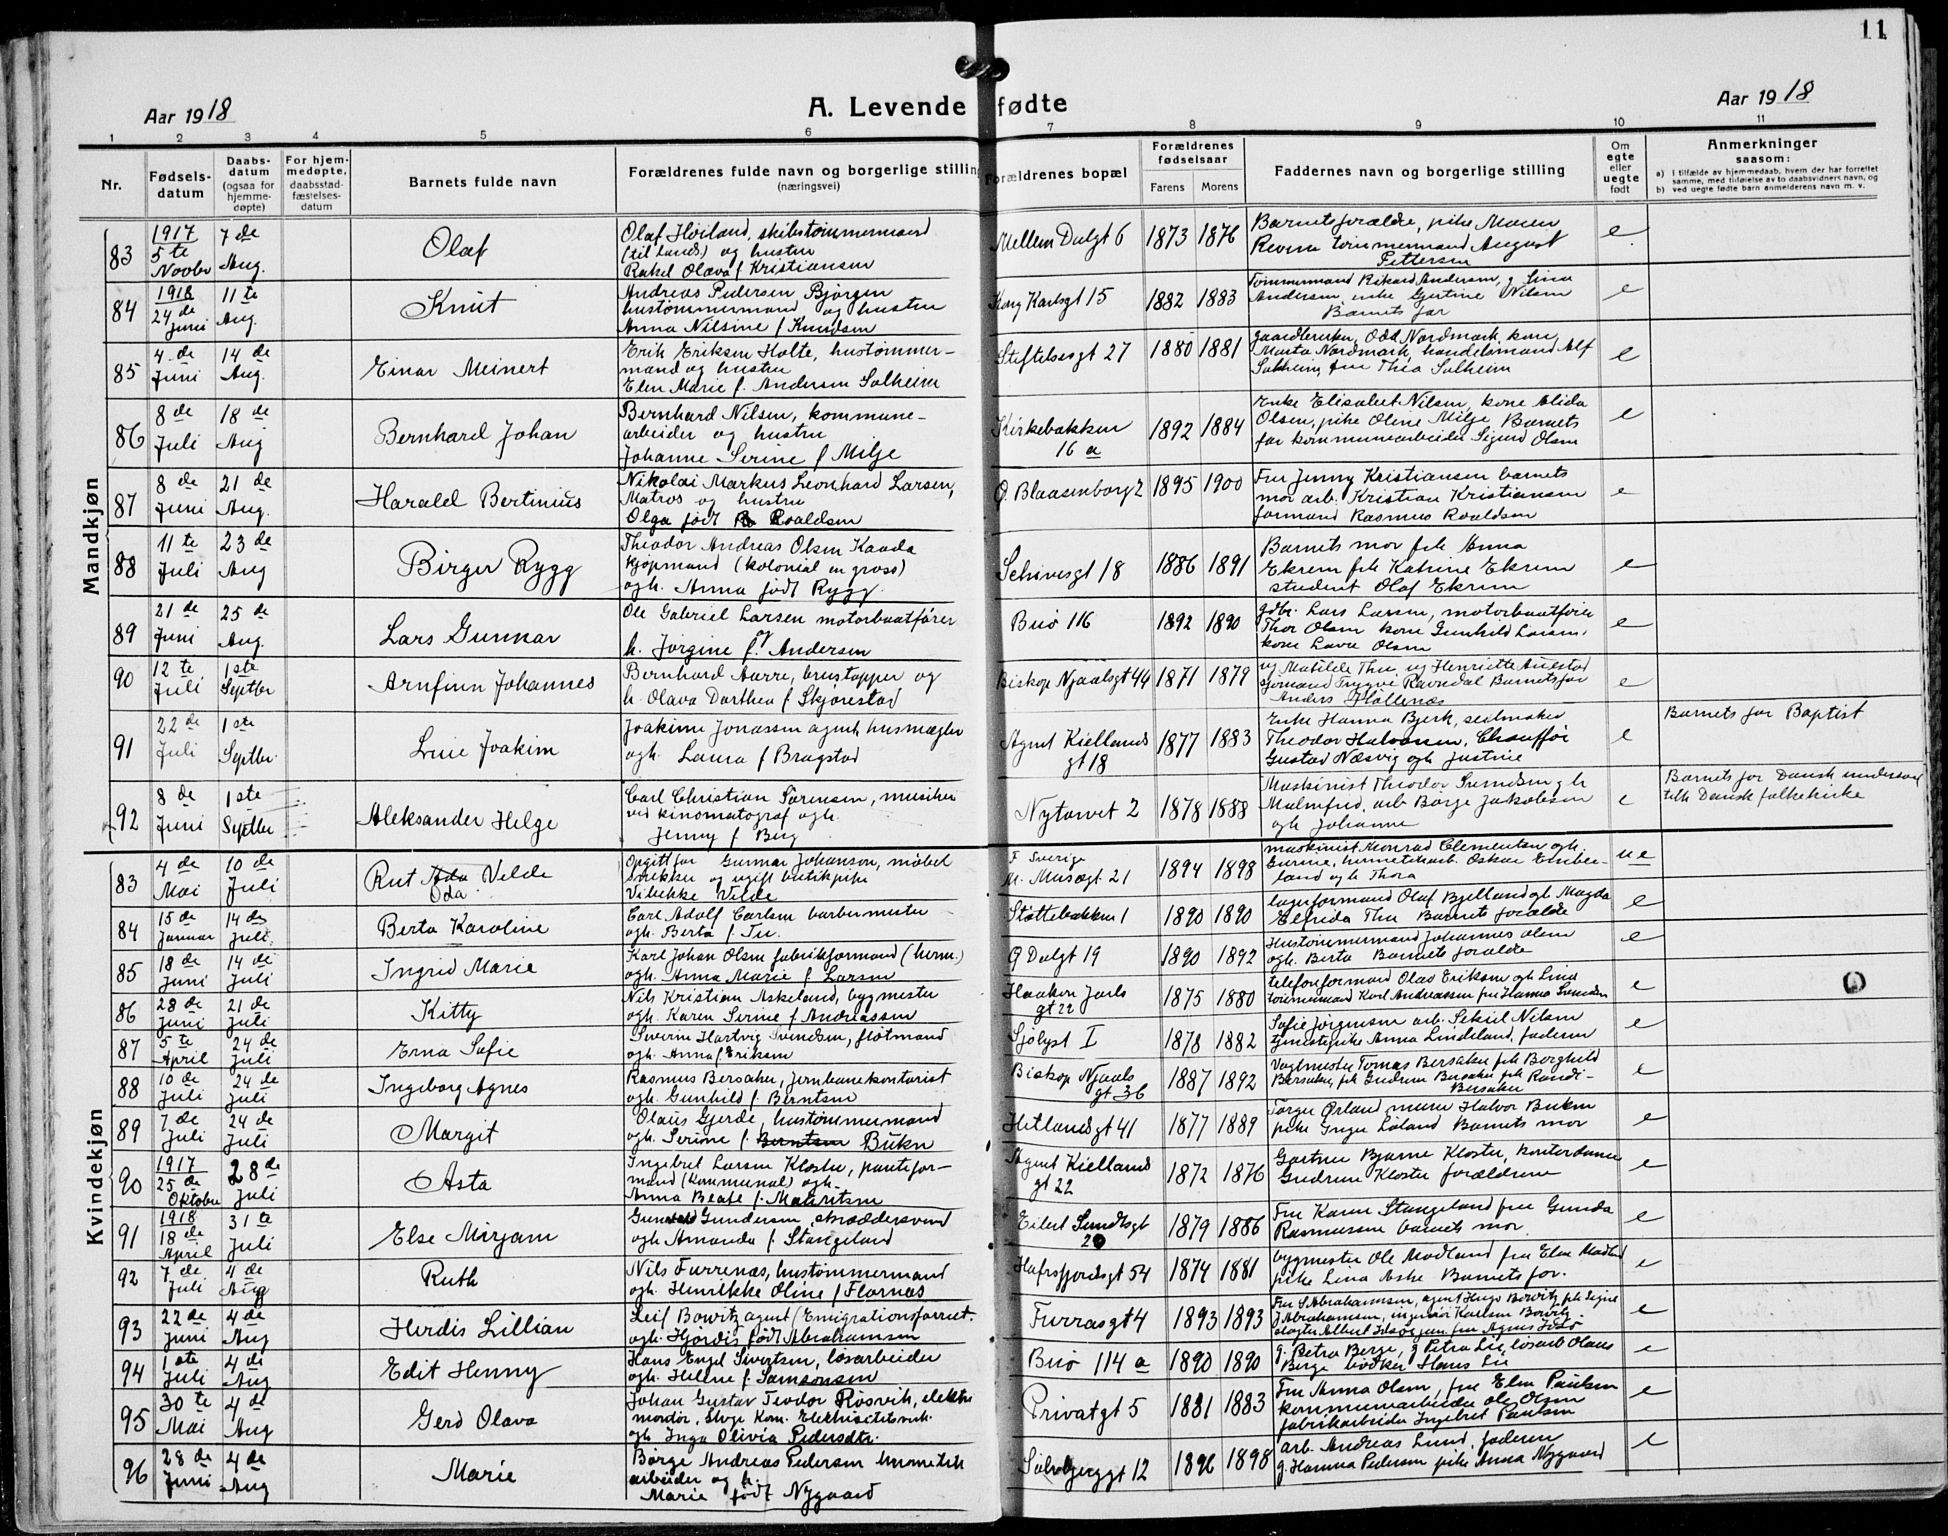 11
Aar 1918
A. Levende fødte
Aar 1918
1 2 3 4 5 6 7 8 9 10 11
Nr.
Fødsels-
datum
Daabs-
datum
(ogsaa for
hjemme-
døpte)
For hjem-
medøpte,
daabsstad-
fæstelses-
datum
Barnets fulde navn
Forældrenes fulde navn og borgerlige stilling
(næringsvei)
Forældrenes bopæl
Forældrenes
fødselsaar
Farens Morens
Faddernes navn og borgerlige stilling
Om
egte
eller
uegte
født
Anmerkninger
saasom:
a) i tilfælde av hjemmedaab, hvem der har forrettet
samme, med tilføielse av to daabsvidners navn, og
b) ved uegte fødte barn anmelderens navn m. v.
Mandkjøn
83 1917 5te Novbr 7de Aug. Olaf
Olaf Høiland, skibstømmermand
(til Lands) og hustru
Rakel Olava f Kristiansen
Mellem Dalgt 6 1873 1876
Barnets forældre, pike Maren
Revem tømmermand August
Pettersen
e
84 1918 24de Juni 11te Aug. Knut
Andreas Pedersen Bjørgen
hustømmermand og hustru
Anna Nilsine f Knudsen
Kong Karlsgt 15 1882 1883
Tømmermand Rikard Andersen, g Sina
Andersen, enke Gjertine Nilsen
Barnets far
e
85 4de Juni 14de Aug. Einar Meinert
Erik Eriksen Holte, hustømmer-
mand og hustru
Elen Marie f. Andersen Solheim
Stiftelsesgt 27 1880 1881
gaardbruker, Odd Nordmark, kone
Marta Nordmark, handelsmand Alf
Solheim, fru Thea Solheim
e
86 8de Juli 18de Aug Bernhard Johan
Bernhard Nilsen, kommune-
arbeider og hustru
Johanne Serine f Milje
Kirkebakken
16 a 1892 1884
Enke Elisabet Nilsen, kone Alida
Olsen, pike Oline Milje, Barnets
far kommunearbeider Sigurd Olsen
e
87 8de Juni 21de Aug. Harald Bertinius
Nikolai Markus Leonhard Larsen,
Matros og hustru
Olga født Roaldsen
Ø. Blaasenborg 2 1895 1900
Fru Jenny Kristiansen barnets
mor arb. Kristian Kristiansen
formand Rasmus Roaldsen
e
88 11te Juli 23de Aug Birger Rygg
Theodor Andreas Olsen Kaada
Kjøpmand (kolonial en gross)
ogh. Anna født Rygg.
Schivesgt 18 1886 1891
Barnets mor frk Anna
Ekrem frk Katrine Ekrem
student Olaf Ekrem
e
89 21de Juni 25de Aug. Lars Gunnar
Ole Gabriel Larsen motorbaatfører
og
h. Jørgine f. Andersen
Buø 116 1892 1890
gdbr. Lars Larsen, motorbaatfører
Thor Olsen kone Gunhild Larsen,
kone Lavre Olsen
e
90 12te Juli 1ste Septbr Arnfinn Johannes
Bernhard Aarre, brustapper og
h. Olava Dorthea f Skjørestad
Biskop Njaalsgt 44 1871 1879
ug Matilde Thu ug Henriette Auestad
sjømand Trygve Ravndal Barnets far
Anders Høllenæs
e
91 22de Juli 1ste Septbr. Luie Joakim
Joakime Jonassen agent, husmægler
ogh. Laura f Bragstad
Agent Kiellands
gt 18 1877 1883
Enke Hanna Bjerk, seilmaker
Theodor Halvorsen, Chauffør
Gustav Næsvig ogh Justine
e
Barnets far Baptist
92 8de Juni 1ste Septbr Aleksander Helge
Carl Christian Sørensen, musiker
ved kinomatograf ogh.
Jenny f Berg
Nytorvet 2 1878 1888
Maskinist Theodor Svendsen g h
Malmfrid, arb Børge Jakobsen
ogh Johanne
e
Barnets far Dansk undersaat
tilh Dansk folkekirke
Kvindekjøn
83 4de Mai 10de Juli Rut Ada Velde
Oda
Opgit far Gunnar Johanson, møbel
snekker og ugift butikpike
Vibekke Velde
F Sverige
M. Musægt 21 1894 1898
maskinist Konrad Clementsen ogh.
Gurine, hermetikarb. Oskar Timber-
land ogh Thora
ue
84 15de Januar 14de Juli. Berta Karoline
Carl Adolf Carlsen barbermester
ogh. Berta f Tu.
Støttebakken 1 1890 1890
lagerformand Olaf Bjelland ogh Magda
Elfrida Thu Barnets forældre
e
85 18de Juni 14de Juli Ingrid Marie
Karl Johan Olsen fabrikformand (herm.)
ogh. Anna Marie f Larsen
Ø Dalgt 19 1890 1892
Hustømmermand Johannes Olsen
ogh. Berta Barnets forældre
e
86 28de Juni 21de Juli Kitty
Nils Kristian Askeland, bygmester
ogh. Karen Serine f Andreassen
Haakon Jarls
gt 22 1875 1880
telefonformand Olav Eriksen ogh Lina
tømmermand Karl Andreassen fru Hanna Svendsen
e
87 5te April 24de Juli Erna Sofie
Severin Hartvig Svendsen, fløtmand
ogh. Anna f Eriksen
Sjølyst I 1878 1882
Sofie Jørgensen arb. Sekiel Nilsen
tjenestepike Anna Lindeland, faderen
e
88 10de Juli 24de Juli Ingeborg Agnes
Rasmus Bersaker, jernbanekontorist
ogh. Gunhild f Berntsen
Biskop Njaals
gt 36 1887 1892
Vogtmester Tomas Bersaker frk Borghild
Bersaker, frk Gudrun Bersaker frk Randi-
Bersaker
e
89 7de Juli 24de Juli Margit
Olaus Gjerde, hustømmermand
ogh. Serine f. Berntsen Bukn
Hetlandsgt 41 1877 1889
Torger Ørland murer Halvor Bukn
pike Inger Løland Barnets mor
e
90 1917 25de Oktober 28de Juli Asta
Ingebret Larsen Kloster, parkfor-
mand (kommunal) ogh.
Anna Beate f. Mauritsen
Agent Kiellands
gt 22 1872 1876
Gartner Bjarne Kloster, kontordame
Gudrun Kloster forældrene
e
91 1918 18de April 31te Juli Else Mirjam
Gunvald Gundersen, skræddersvend
ogh Amanda f. Stangeland
Eilert Sundtsgt
20 1879 1886
Fru Karen Stangeland fru Gunda
Rasmussen barnets mor
e
92 7de Juli 4de Aug Ruth
Nils Furrenæs, hustømmermand
ogh. Henrikke Oline f Flornæs
Hafrsfjordsgt 54 1874 1881
bygmester Ole Modland fru Elen Modland
pike Lina Aske Barnets far.
e
93 22de Juni 4de Aug Herdis Lillian
Leif Bowitz agent (Emigrationsforret.
ogh. Hjørdis født Abrahamsen
Furrasgt 4 1893 1893
Fru S Abrahamsen, agent Hugo Bowitz frk Signe
J Abrahamsen, ingeniør Karlsen Bowitz
slagter Albert Idsøe jun. fru Agnes Idsø
e
94 1ste Juli 4de Aug Edit Henny
Hans Engel Sivertsen, løsarbeider
ogh. Helene f. Samsonsen
Buø 114 a 1890 1890
g: Petra Berge, g Petra Lie, løsarb Olaus
Berge bødker Hans Lie
e
95 30te Mai 4de Aug Gerd Olava
Johan Gustav Teodor Røsvik, elektro
mordør, Stvgr Kom. Elektricitetsverk.
ogh Inga Olivia Pedersdtr.
Privatgt 5 1881 1883
Fru Anna Olsen, fru Elen Paulsen
kommunearbeider Ole Olsen
fabrikarbeider Ingebret Paulsen
e
96 28de Juni 4de Aug Marie
Børge Andreas Pedersen hermetik
arbeider og h.
Marie født Nygaard
Sølvbergt 12 1896 1898
arb. Andreas Lund, faderen
g. Hanna Pedersen pike Anna Nygaard
e